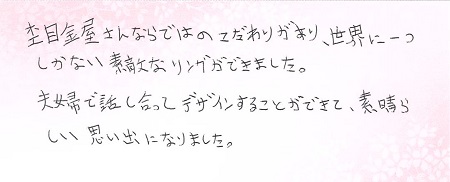 杢目金屋さんならではのこだわりがあり、世界に一つ
しかない素敵なリングができました。
夫婦で話し合ってデザインすることができて、素晴ら
しい思い出になりました。